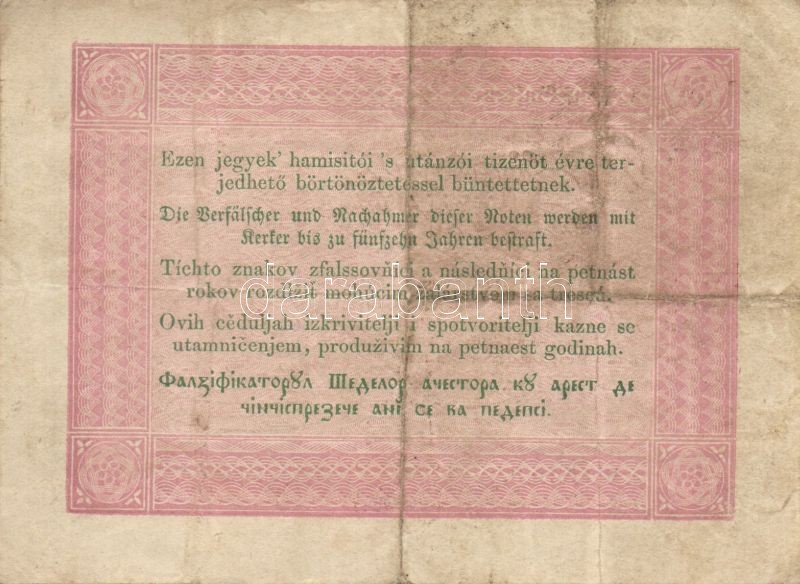 Ezen jegyek' hamisitói 's utánzói tizenöt évre ter-
jedhető börtönöztetéssel büntettetnek.
Die Verfälscher und Nachahmer dieser Noten werden mit
Kerker bis zu fünfzehn Jahren bestraft.
Tíchto znakov zfalssovňíci a následňíci ňa petnást
rokov
darabanth
Ovih cěduljah izkrivitelji i spotvoritelji kazne se
utamničenjem, produživim na petnaest godinah.
Фалꙁіфікаторꙋл Шеделор ачестора кꙋ арест де
чінчіспреꙁече ані се ва педепсі.